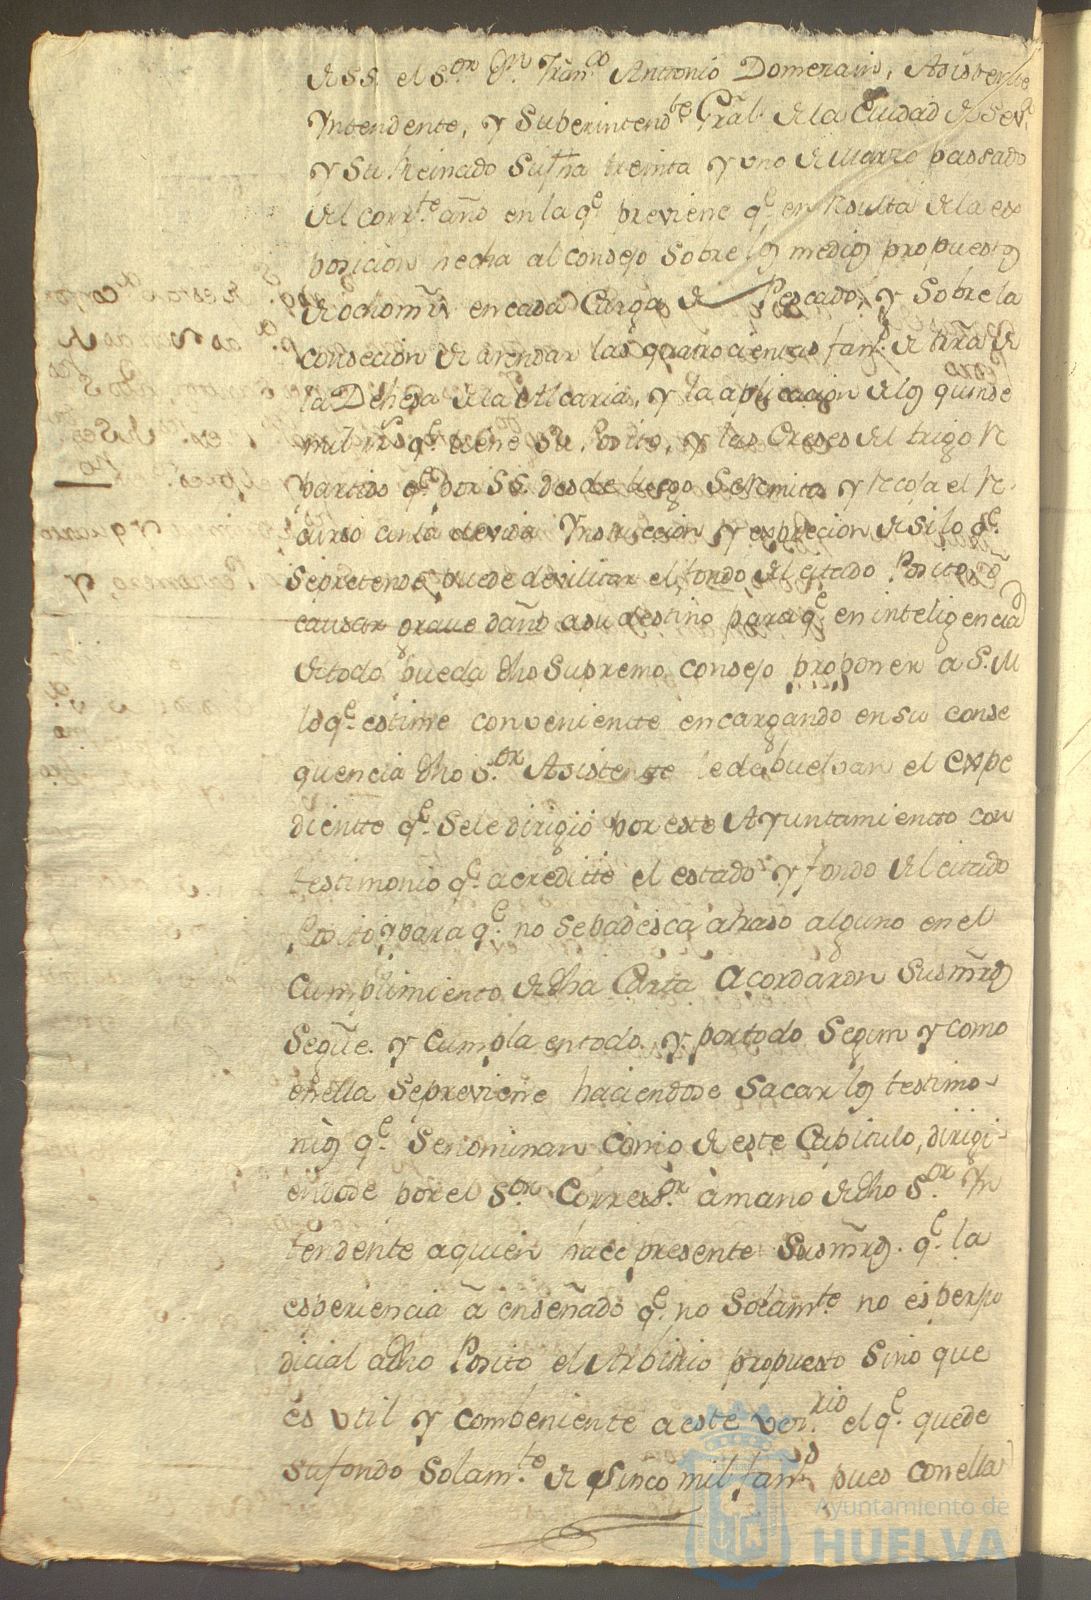 de S.S. el S.or D.n Fran.co Antonio Domezain, Asistente
Yntendente, y Suberintend.te Gral. de la Ciudad de Sev.a
y Su Reinado Su fha treinta y uno de Marzo passado
del corr.te año en la q.e previene q.e en Resulta de la es
posicion hecha al consejo Sobre los medios propuestos
de ocho mrs en cada Carga de Pescado, y Sobre la
consecion de arendar las quatrocientas fan.s de tirra de
la Dehesa de la Alcaria, y la aplicacion de los quinse
mil rrs q.e tiene su Posito, y las Creses del trigo R
partido q.e por S.S. desde luego Se Remita y Recoja el R
curso con la devida Ynstruccion y exprecion de si lo q.e
se pretende puede devilitar el fondo del citado Posito, o
causar grave daño a su destino para q.e en inteligencia
de todo pueda dho Supremo consejo proponer a S.M
lo q.e estime conveniente encargando en su conse
quencia dho S.or Asistente le debuelvan el expe
diente q.e Se le dirigio por este Ayuntamiento con
testimonio q.e acreditte el estado y fondo del citado
Posito, y para q.e no Se padesca atraso alguno en el
Cumplimiento de dha Carta Acordaron Sus mrds
Se gûe. y Cumpla en todo y por todo Segun y como
en ella Se previene haciendose Sacar los testimo-
nios q.e Se nominan como de este Cabildo, dirigi-
endose por el S.or Corregi.or a mano de dho S.or Yn
tendente a quien hace presente Sus mrds. q.e la
esperiencia â enseñado q.e no Solam.te no es perju
dicial a dho Posito el Arbitrio propuesto Sino que
es util y combeniente a este vecin.rio el q.e quede
su fondo Solam.te de Sinco mil fan.s pues con ella
Ayuntamiento de
HUELVA